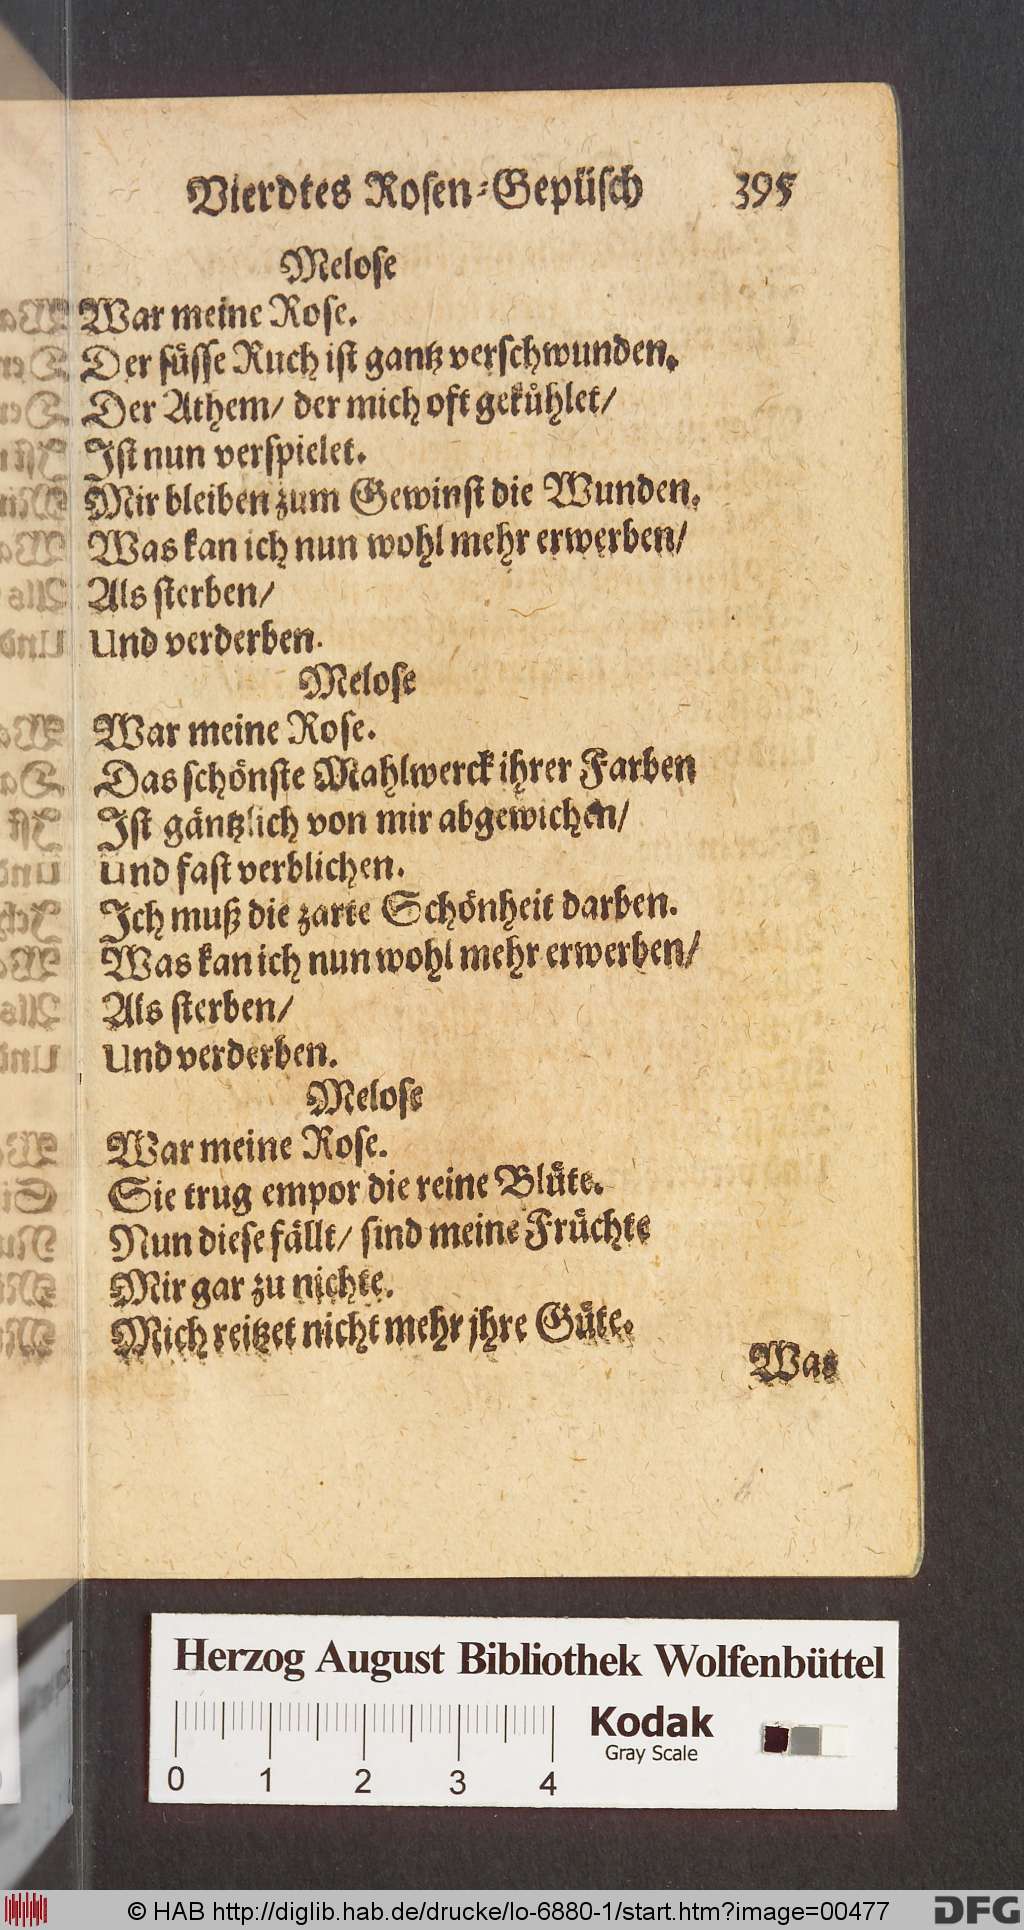 Vierdtes Rosen-Gepüsch 395
Melose
War meine Rose.
Der süsse Ruch ist gantz verschwunden.
Der Athem/ der mich oft gekühlet/
Ist nun verspielet.
Mir bleiben zum Gewinst die Wunden.
Was kan ich nun wohl mehr erwerben/
Als sterben/
Und verderben.
Melose
War meine Rose.
Das schönste Mahlwerck ihrer Farben
Ist gäntzlich von mir abgewichen/
Und fast verblichen.
Ich muß die zarte Schönheit darben.
Was kan ich nun wohl mehr erwerben/
Als sterben/
Und verderben.
Melose
War meine Rose.
Sie trug empor die reine Blüte.
Nun diese fällt/ sind meine Früchte
Mir gar zu nichte.
Mich reitzet nicht mehr jhre Güte.
Was
Herzog August Bibliothek Wolfenbüttel
Kodak
Gray Scale
0 1 2 3 4
© HAB http://diglib.hab.de/drucke/lo-6880-1/start.htm?image=00477
DFG